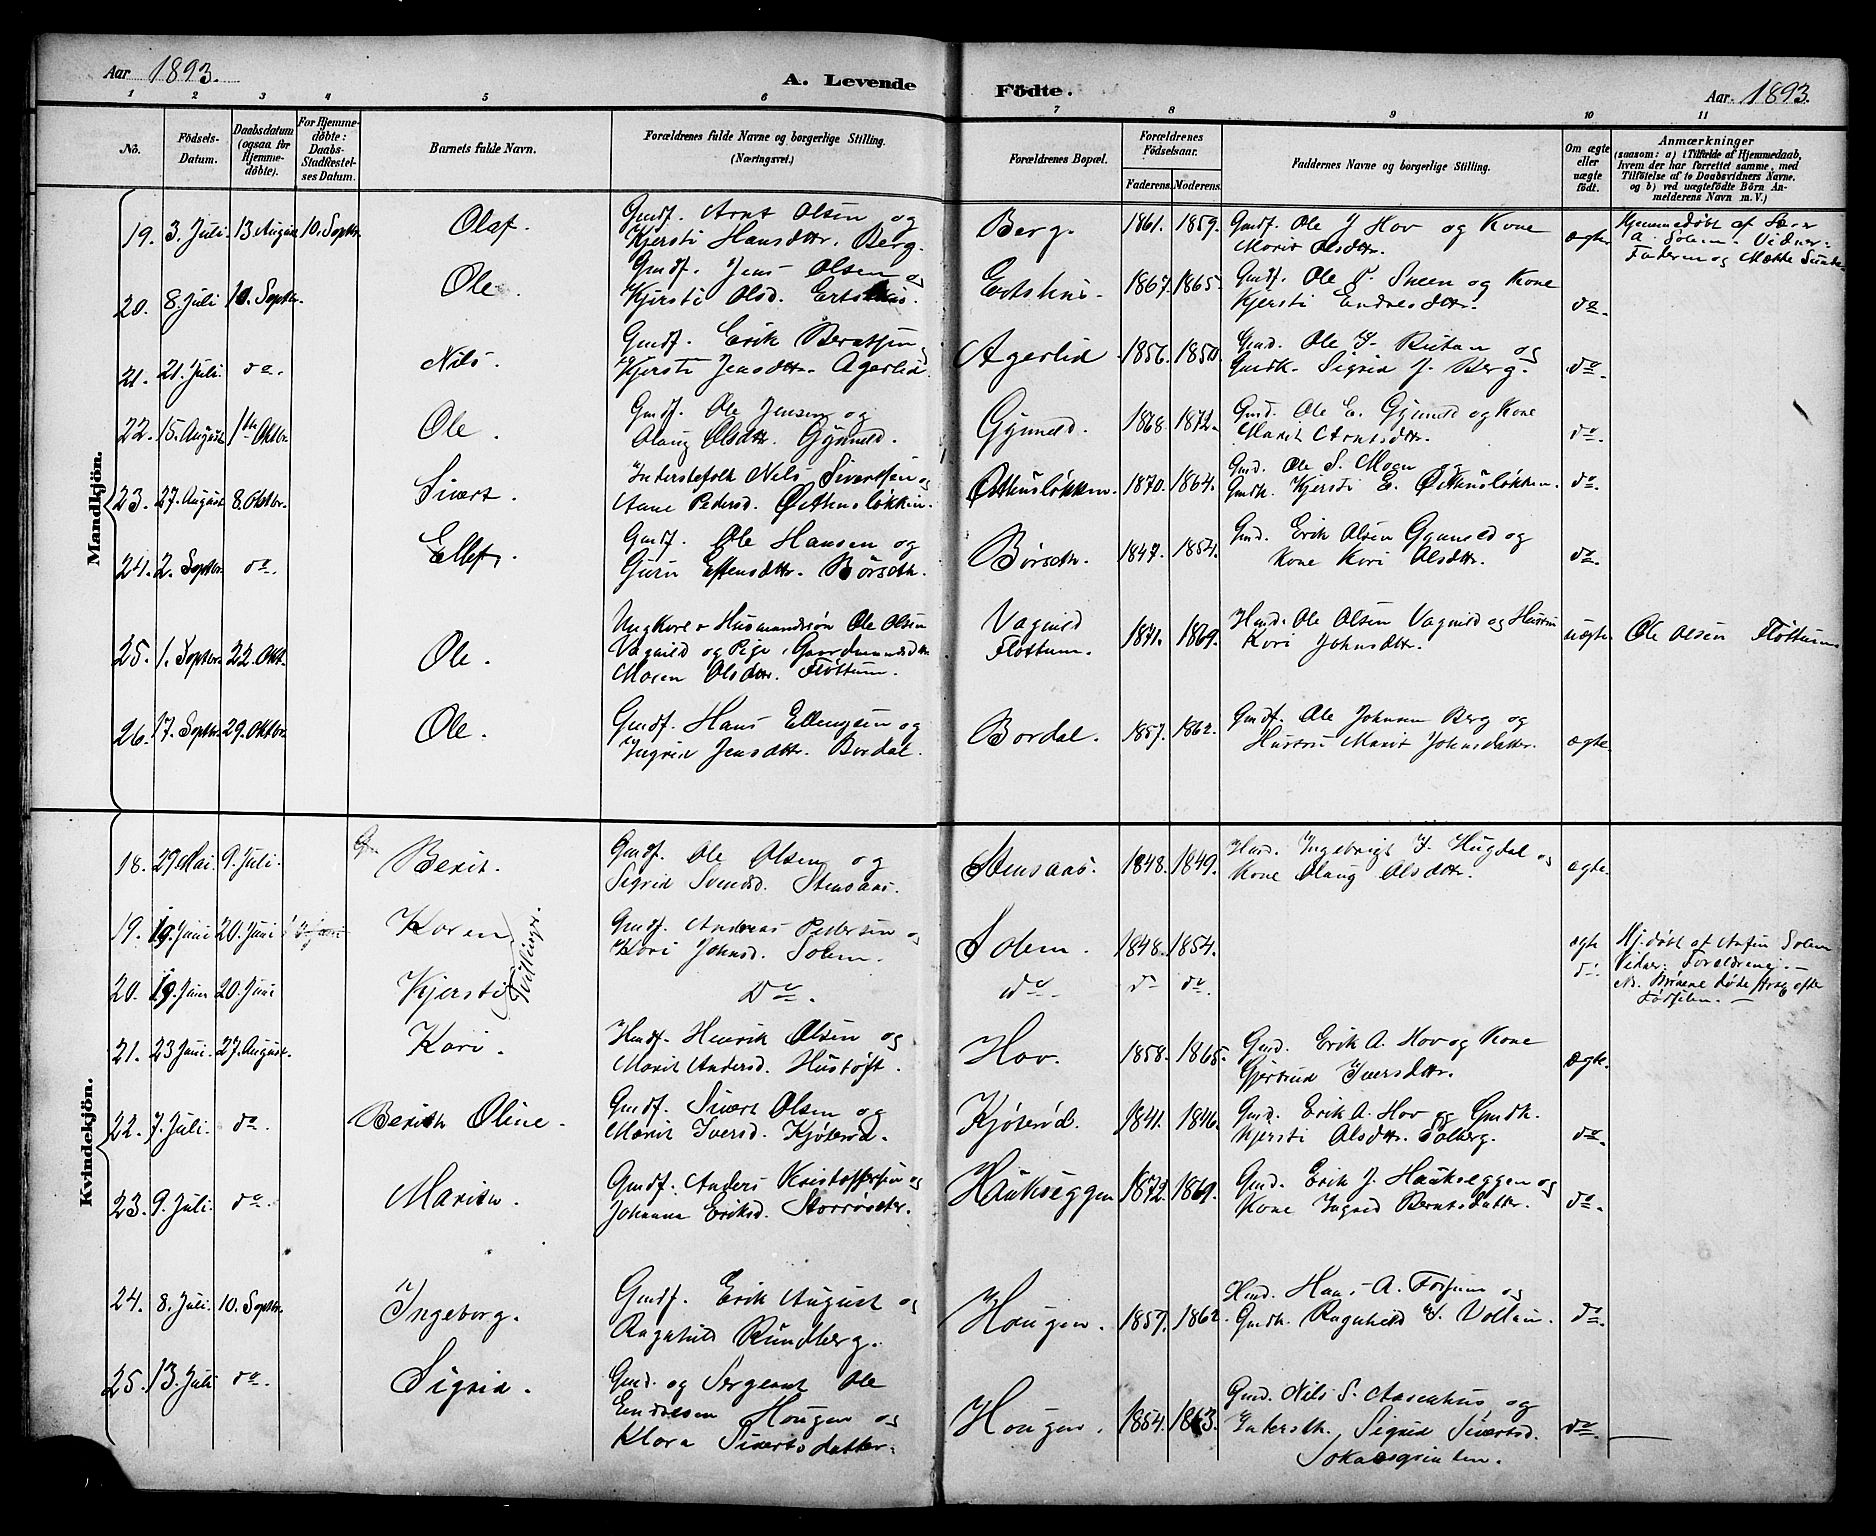 Aar 1893.
A. Levende Födte.
Aar 1893.
1 2 3 4 5 6 7 8 9 10 11
No.
Födsels-Datum.
Daabsdatum (ogsaa for Hjemme-döbte).
For Hjemme-döbte: Daabs-Stadfæstel-ses Datum.
Barnets fulde Navn.
Forældrenes fulde Navne og borgerlige Stilling. (Næringsvei.)
Forældrenes Bopæl.
Forældrenes Födselsaar.
Faderens. Moderens.
Faddernes Navne og borgerlige Stilling.
Om ægte eller uægte födt.
Anmærkninger
(saasom: a) i Tilfælde af Hjemmedaab, hvem der har forrettet samme, med Tilföielse af to Daabsvidners Navne, og b) ved uægtefödte Börn Anmelderens Navn m. V.)
Mandkjön.
19. 3. Juli 13 August 10. Septbr. Olaf. Gmdf. Arnt Olsen og
Kjersti Hansdttr. Berg. Berg. 1861. 1859. Gmdf. Ole J Hov og Kone
Marit Olsdttr. ægte Hjemmedøbt af Lærer
A. Solem. Vidner:
Faderen og Mætte
20. 8. Juli 10. Septbr. Ole. Gmdf. Jens Olsen og
Kjersti Olsd. Ertshus. Ertshus. 1867. 1865. Gmdf. Ole P. Sneen og Kone
Kjersti Endresdttr. do.
21. 21. Juli do. Nils. Gmdf. Erik Berntsen
Kjersti Jensdttr. Agerlid. Agerlid 1856. 1850. Gmd. Ole I. Butan og
Gmdk. Sigrid J. Berg. do.
22. 15. August 1ste Oktbr. Ole. Gmdf. Ole Jensen og
Olaug Olsdttr. Gynnild. Gynnild. 1868. 1872. Gmd. Ole E. Gynnild og Kone
Marit Arntsdttr. do.
23. 27. August 8. Oktbr. Sivert. Inderstefolk Nils Sivertsen og
Anne Pedersd. Østhusløkken. Østhusløkken. 1870. 1864. Gmd. Ole S. Moen og
Gmdk. Kjersti E. Østhusløkken. do.
24. 2. Septbr. do. Ellef. Gmdf. Ole Hansen og
Guru Estensdttr. Børseth. Børseth. 1847. 1854. Gmd. Erik Olsen Gynnild og
Kone Kari Olsdttr. do.
25. 1. Septbr. 22. Okt. Ole. Ungkarl Husmandssøn Ole Olsen
Vagnild og Pige, Gaardmandsdtr
Maren Olsdttr. Fløttum. Vagnild
Fløttum. 1871. 1869. Hmd. Ole Olsen Vagnild og Hustru
Kari Johnsdttr. uægte Ole Olsen Fløttum
26. 17. Septbr. 29. Oktbr. Ole. Gmdf. Hans Ellingsen og
Ingrid Jensdttr. Bordal. Bordal. 1857. 1862. Gmdf. Ole Johnsen Berg og
Hustru Marit Johnsdatter. ægte
Kvindekjön.
18. 29 Mai. 9. Juli. Berit. Gmdf. Ole Olsen og
Sigrid Svendsd. Stensaas. Stensaas. 1848. 1849. Hmd. Ingebrigt I. Hugdal og
Kone Olaug Olsdttr. ægte.
19. 19 Juni 20. Juni Karen Gmdf. Andreas Pedersen og
Kari Johnsd. Solem. Solem. 1848. 1854. ægte Hj. døbt af Anfin Solem
Vidner: Forældrene.
20. 19. Juni 20. Juni Kjersti Tvillinger. Do. do. do do. do. Nb. Børnene døde strax efter
Fødselen.
21. 23 Juni. 27. August. Kari. Hmdf. Henrik Olsen og
Marit Andersd. Hustøft. Hov. 1858. 1865. Gmd. Erik A. Hov og Kone
Gjertrud Iversdttr. ægte.
22. 7. Juli. do. Berith Oline. Gmdf. Sivert Olsen og
Marit Iversd. Kjøterød. Kjøterød. 1841. 1846. Gmd. Erik A. Hov og Gmdk.
Kjersti Olsdttr. Solberg. do.
23. 9. Juli. do. Maria. Gmdf. Anders Kristoffersen og
Johanna Eriksd. Storrøseter. Haukseggen 1872. 1869. Gmd. Erik J. Haukseggen og
Kone Ingrid Berntsdatter. do.
24. 8. Juli. 10. Septbr. Ingeborg. Gmdf. Erik August og
Ragnhild Rundberg. Haugen. 1857. 1862. Hmd. Hans A. Fossum og
Gmdk. Ragnhild I. Vollan. do.
25. 13. Juli do. Sigrid. Gmd. og Sergeant Ole
Endresen Haugen og
Klara Sivertsdatter. Haugen. 1854. 1863. Gmd. Nils S. Aasenhus og
Inderstk. Sigrid Sivertsd. do.